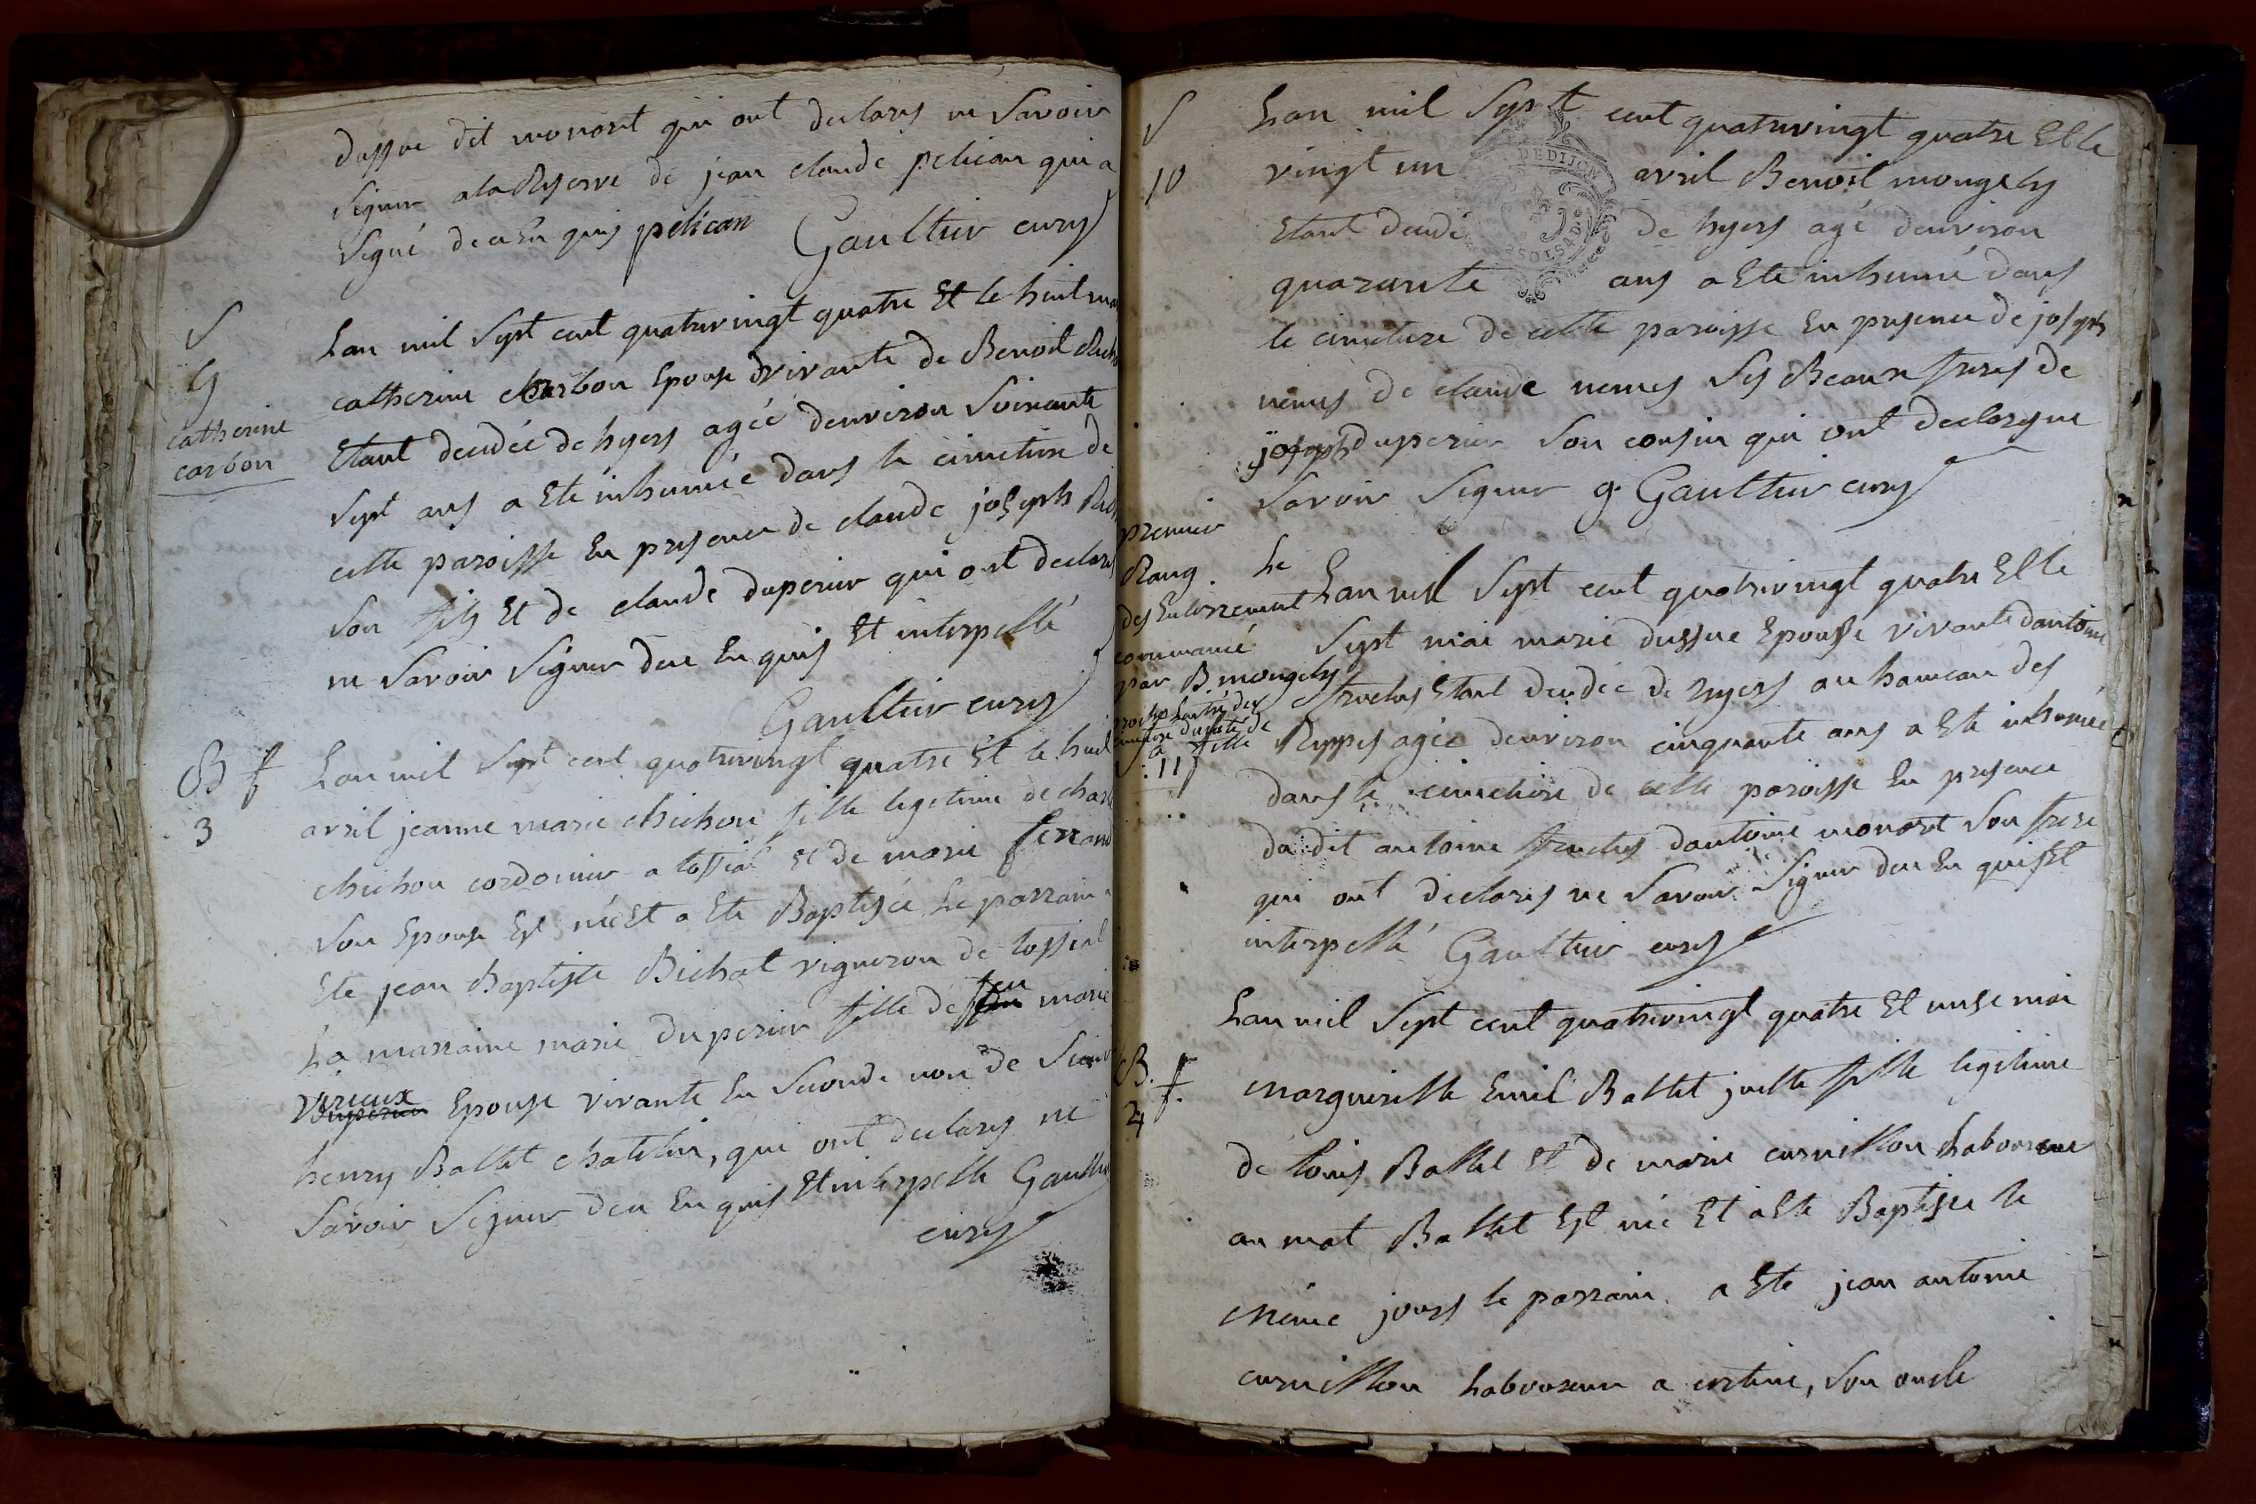 dussue dit monort qui ont declarés ne Savoir
signer a la Reserve de jean claude pelican qui a
signé de ce Enquis pelican Gaultier curé
S
9
catherine
carbon
Lan mil Sept cent quatrevingt quatre Et le huit
catherine charbon Epouse vivante de Benoit
Etant decedée de hyers agée denviron Soixante
Sept ans a Ete inhumée dans le cimetiere de
cette paroisse En presence de claude joseph
Son fils Et de claude duperier qui ont declarés
ne Savoir Signer dece Enquis Et interpellé
Gaultier curé
B f
3
Lan mil Sept cent quatrevingt quatre Et le huit
avril jeanne marie chichon fille legitime de
chichon cordonier a tossiat Et de marie ferrand
Son Epouse Est née Et a Ete Baptisée Le parrain a
Ete jean Baptiste Bichat vigneron de tossiat
La marraine marie duperier fille de feu marie
vireux Epouse vivante En Seconde non de
henry Bollet chatelin, qui ont declarés ne
Savoir Signer dece Enquis Et interpelle Gaultier
curé
S
10
Lan mil Sept cent quatrevingt quatre Et le
vingt un avril Benoit mongely
Etant decedé de hyers agé denviron
DEDIJON
quarante ans a Ete inhumé dans
le cimetiere de cette paroisse En presence de joseph
nemes de claude nemes Ses Beaux freres de
joseph duperier Son cousin qui ont declaré ne
Savoir Signer g. Gaultier curé
premier
Rang
des Enterrement
commancé
par B mongely
a
11
Le
Lan mil Sept cent quatrevingt quatre Et le
Sept mai marie dussue Epouse vivante dantoine
Etant decedée de hyers au hameau des
Rippes agée denviron cinquante ans a Ete inhumée
dans le cimetiere de cette paroisse En presence
du dit antoine dantoine monort Son frere
qui ont declarés ne Savoir Signer dece Enquis Et
interpellé Gaultier curé
B. f.
4
Lan mil Sept cent quatrevingt quatre Et unse mai
marguerite Emil Bollet fille legitime
de louis Bollet Et de marie curnillon Laboureur
au mat Bollet Est née Et a Ete Baptisée le
même jours le parrain a Ete jean antoine
curnillon Laboureur a certine, Son oncle